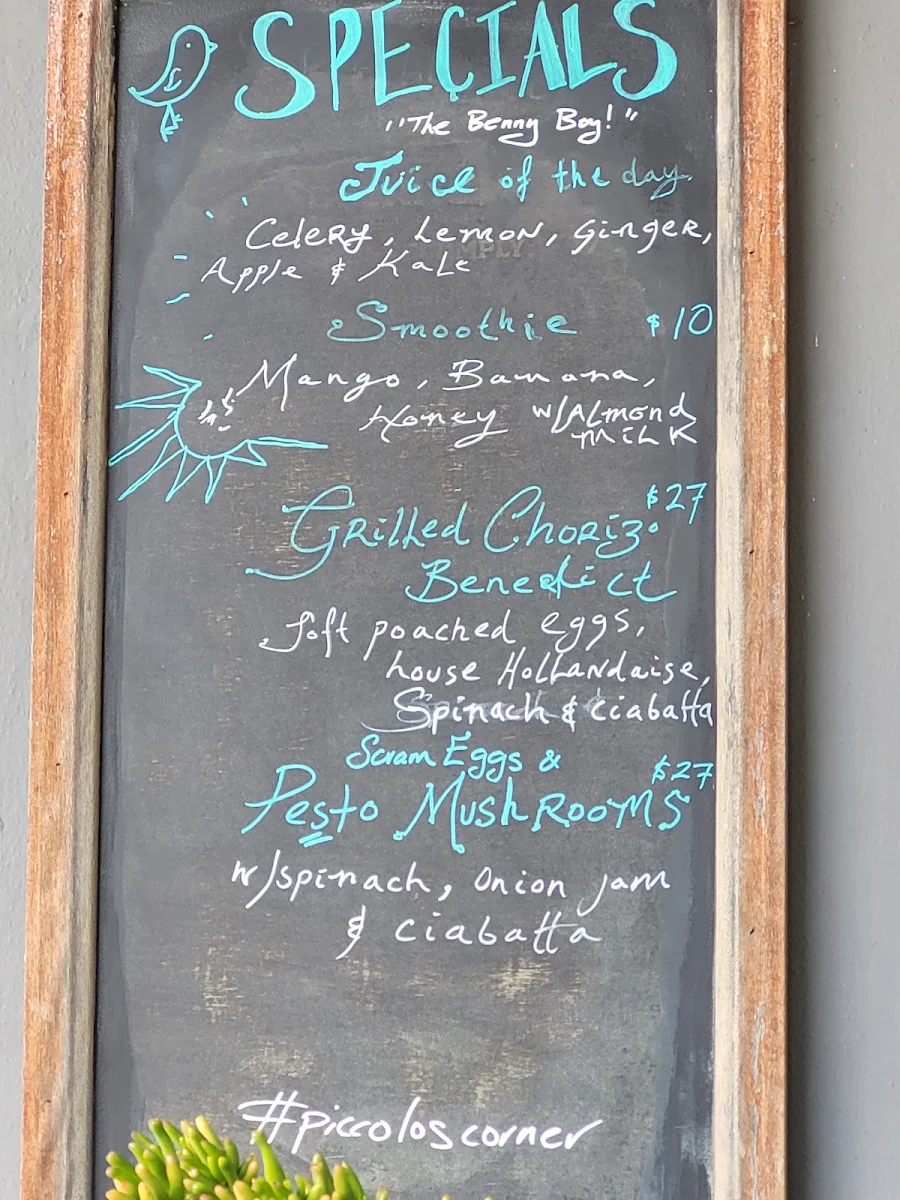 SPECIALS
"The Benny Boy!"
Juice of the day
Celery, Lemon, Ginger,
Apple & Kale
Smoothie $10
Mango, Banana,
Honey w/Almond
milk
$27
Grilled Chorizo
Benedict
Soft poached eggs,
house Hollandaise,
Spinach & ciabatta
Scram Eggs &
$27
Pesto MushRooms
w/spinach, Onion jam
& ciabatta
#piccoloscorner